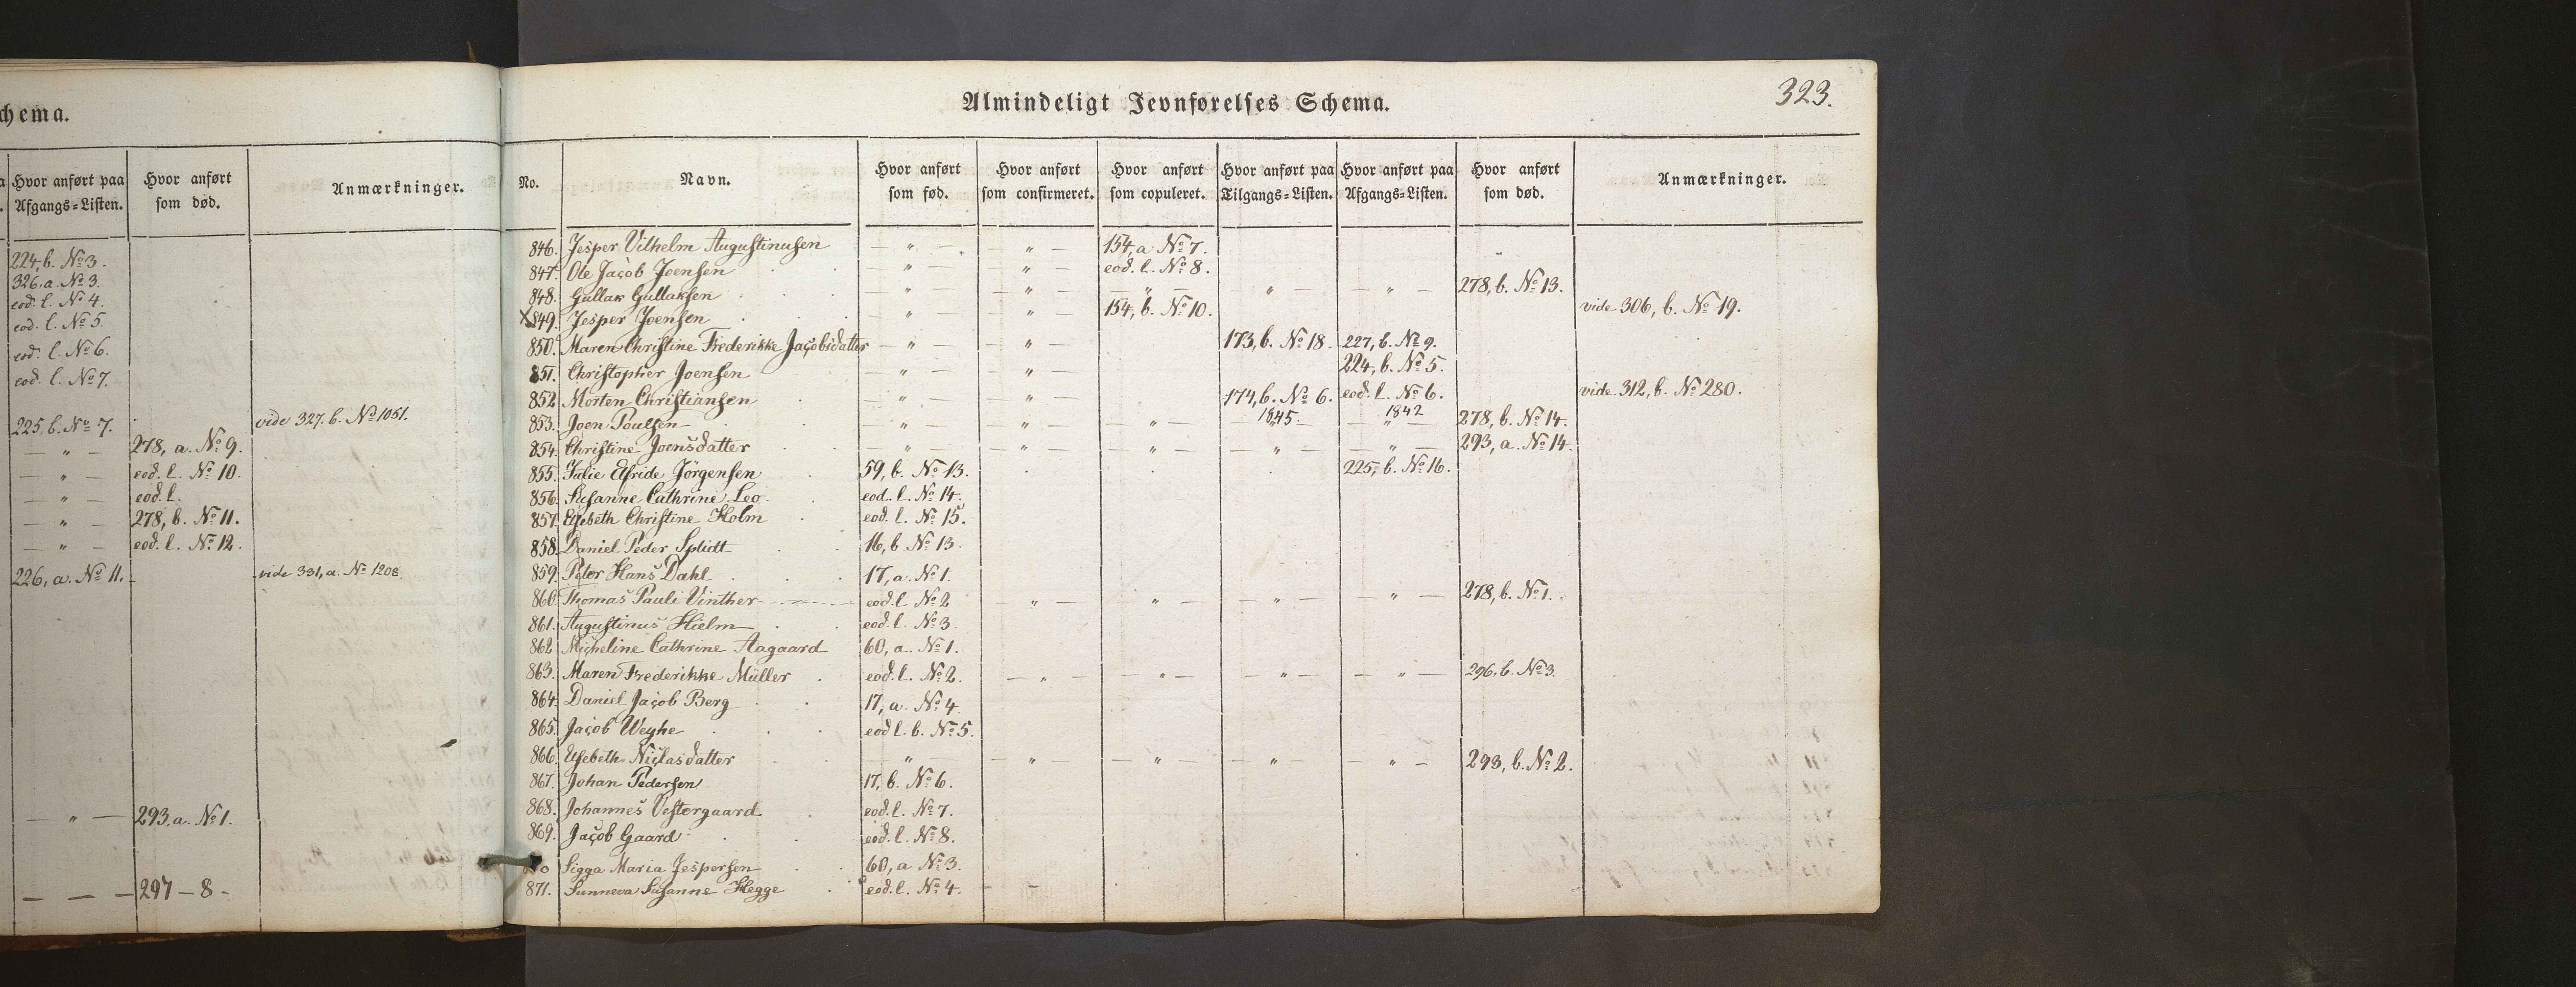 chema.
Hvor anført paa Afgangs=Listen. Hvor anført som død. Anmærkninger.
224, b. No 3.
326. a. No 3.
eod. l. No 4.
eod. l. No 5.
eod. l. No 6.
eod. l. No 7.
225, b. No 7. vide 327. b. No 1051.
— " — 278, a. No 9.
— " — eod. l. No 10.
— " — eod. l.
— " — 278, b. No 11.
— " — eod. l. No 12.
226, a. No 11. vide 331, a. No 1208.
— " — 293. a. No 1.
— — — 297 — 8 —
Almindeligt Jevnførelses Schema. 323.
No. Navn. Hvor anført som fød. Hvor anført som confirmeret. Hvor anført som copuleret. Hvor anført paa Tilgangs=Listen. Hvor anført paa Afgangs=Listen. Hvor anført som død. Anmærkninger.
846. Jesper Vilhelm Augustinusen — " — — " — 154, a. No 7.
847. Ole Jacob Joensen — " — — " — eod. l. No 8.
848. Gullak Gullaksen — " — — " — — " — — " — — " — 278, b. No 13.
X 849. Jesper Joensen — " — — " — 154, b. No 10. vide 306, b. No 19.
850. Maren Christine Frederikke Jacobsdatter — " — — " — 173, b. No 18. 227, b. No 9.
851. Christopher Joensen — " — — " — 224, b. No 5.
852. Morten Christiansen — " — — " — 174, b. No 6. 1845. eod. l. No 6. 1842 vide 312, b. No 280.
853. Joen Poulsen — " — — " — — " — — " — — " — 278, b. No 14.
854. Christine Joensdatter — " — — " — — " — — " — — " — 293, a. No 14.
855. Julie Elfride Jörgensen 59, b. No 13. 225, b. No 16.
856. Susanne Cathrine Leo eod. l. No 14.
857. Elsebeth Christine Holm eod. l. No 15.
858. Daniel Peder Splidt 16, b. No 13.
859. Peter Hans Dahl 17, a. No 1.
860. Thomas Pauli Vinther eod. l. No 2 — " — — " — — " — — " — 278, b. No 1.
861. Augustinus Hielm eod. l. No 3.
862. Micheline Cathrine Aagaard 60, a. No 1.
863. Maren Frederikke Müller eod. l. No 2. — " — — " — — " — — " — 296. b. No 3.
864. Daniel Jacob Berg 17, a. No 4.
865. Jacob Weyhe eod l. b. No 5.
866. Elsebeth Niclasdatter " — " — — " — — " — — " — 293, b. No 2.
867. Johan Pedersen 17, b. No 6.
868. Johannes Vestergaard eod. l. No 7.
869. Jacob Gaard eod. l. No 8.
Sigga Maria Jespersen 60, a No 3.
871. Sunneva Susanne Hegge eod. l. No 4.